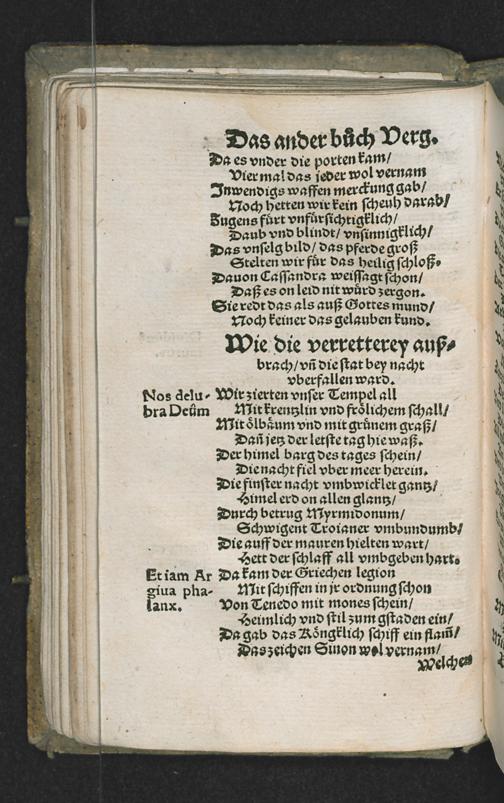 Das ander bůch Verg.
Da es vnder die porten kam/
Vier mal das jeder wol vernam
Inwendigs waffen merckung gab/
Noch hetten wir kein scheuh darab/
Zugens fürt vnfürsichtigklich/
Daub vnd blindt/ vnsinnigklich/
Das vnselg bild/ das pferde groß
Stelten wir für das heilig schloß.
Dauon Cassandra weissagt schon/
Daß es on leid nit würd zergon.
Sie redt das als auß Gottes mund/
Noch keiner das gelauben kund.
Wie die verretterey auß-
brach/ vñ die stat bey nacht
vberfallen ward.
Nos delu-
bra Deûm
Wir zierten vnser Tempel all
Mit krentzlin vnd frölichem schall/
Mit ölbäum vnd mit grünem graß/
Dañ jetz der letste tag hie waß.
Der himel barg des tages schein/
Die nacht fiel vber meer herein.
Die finster nacht vmbwicklet gantz/
Himel erd on allen glantz/
Durch betrug Myrmidonum/
Schwigent Troianer vmbundumb/
Die auff der mauren hielten wart/
Hett der schlaff all vmbgeben hart.
Etiam Ar
giua pha-
lanx.
Da kam der Griechen legion
Mit schiffen in jr ordnung schon
Von Tenedo mit mones schein/
Heimlich vnd stil zum gstaden ein/
Da gab das Köngklich schiff ein flam̃/
Das zeichen Sinon wol vernam/
Welchen